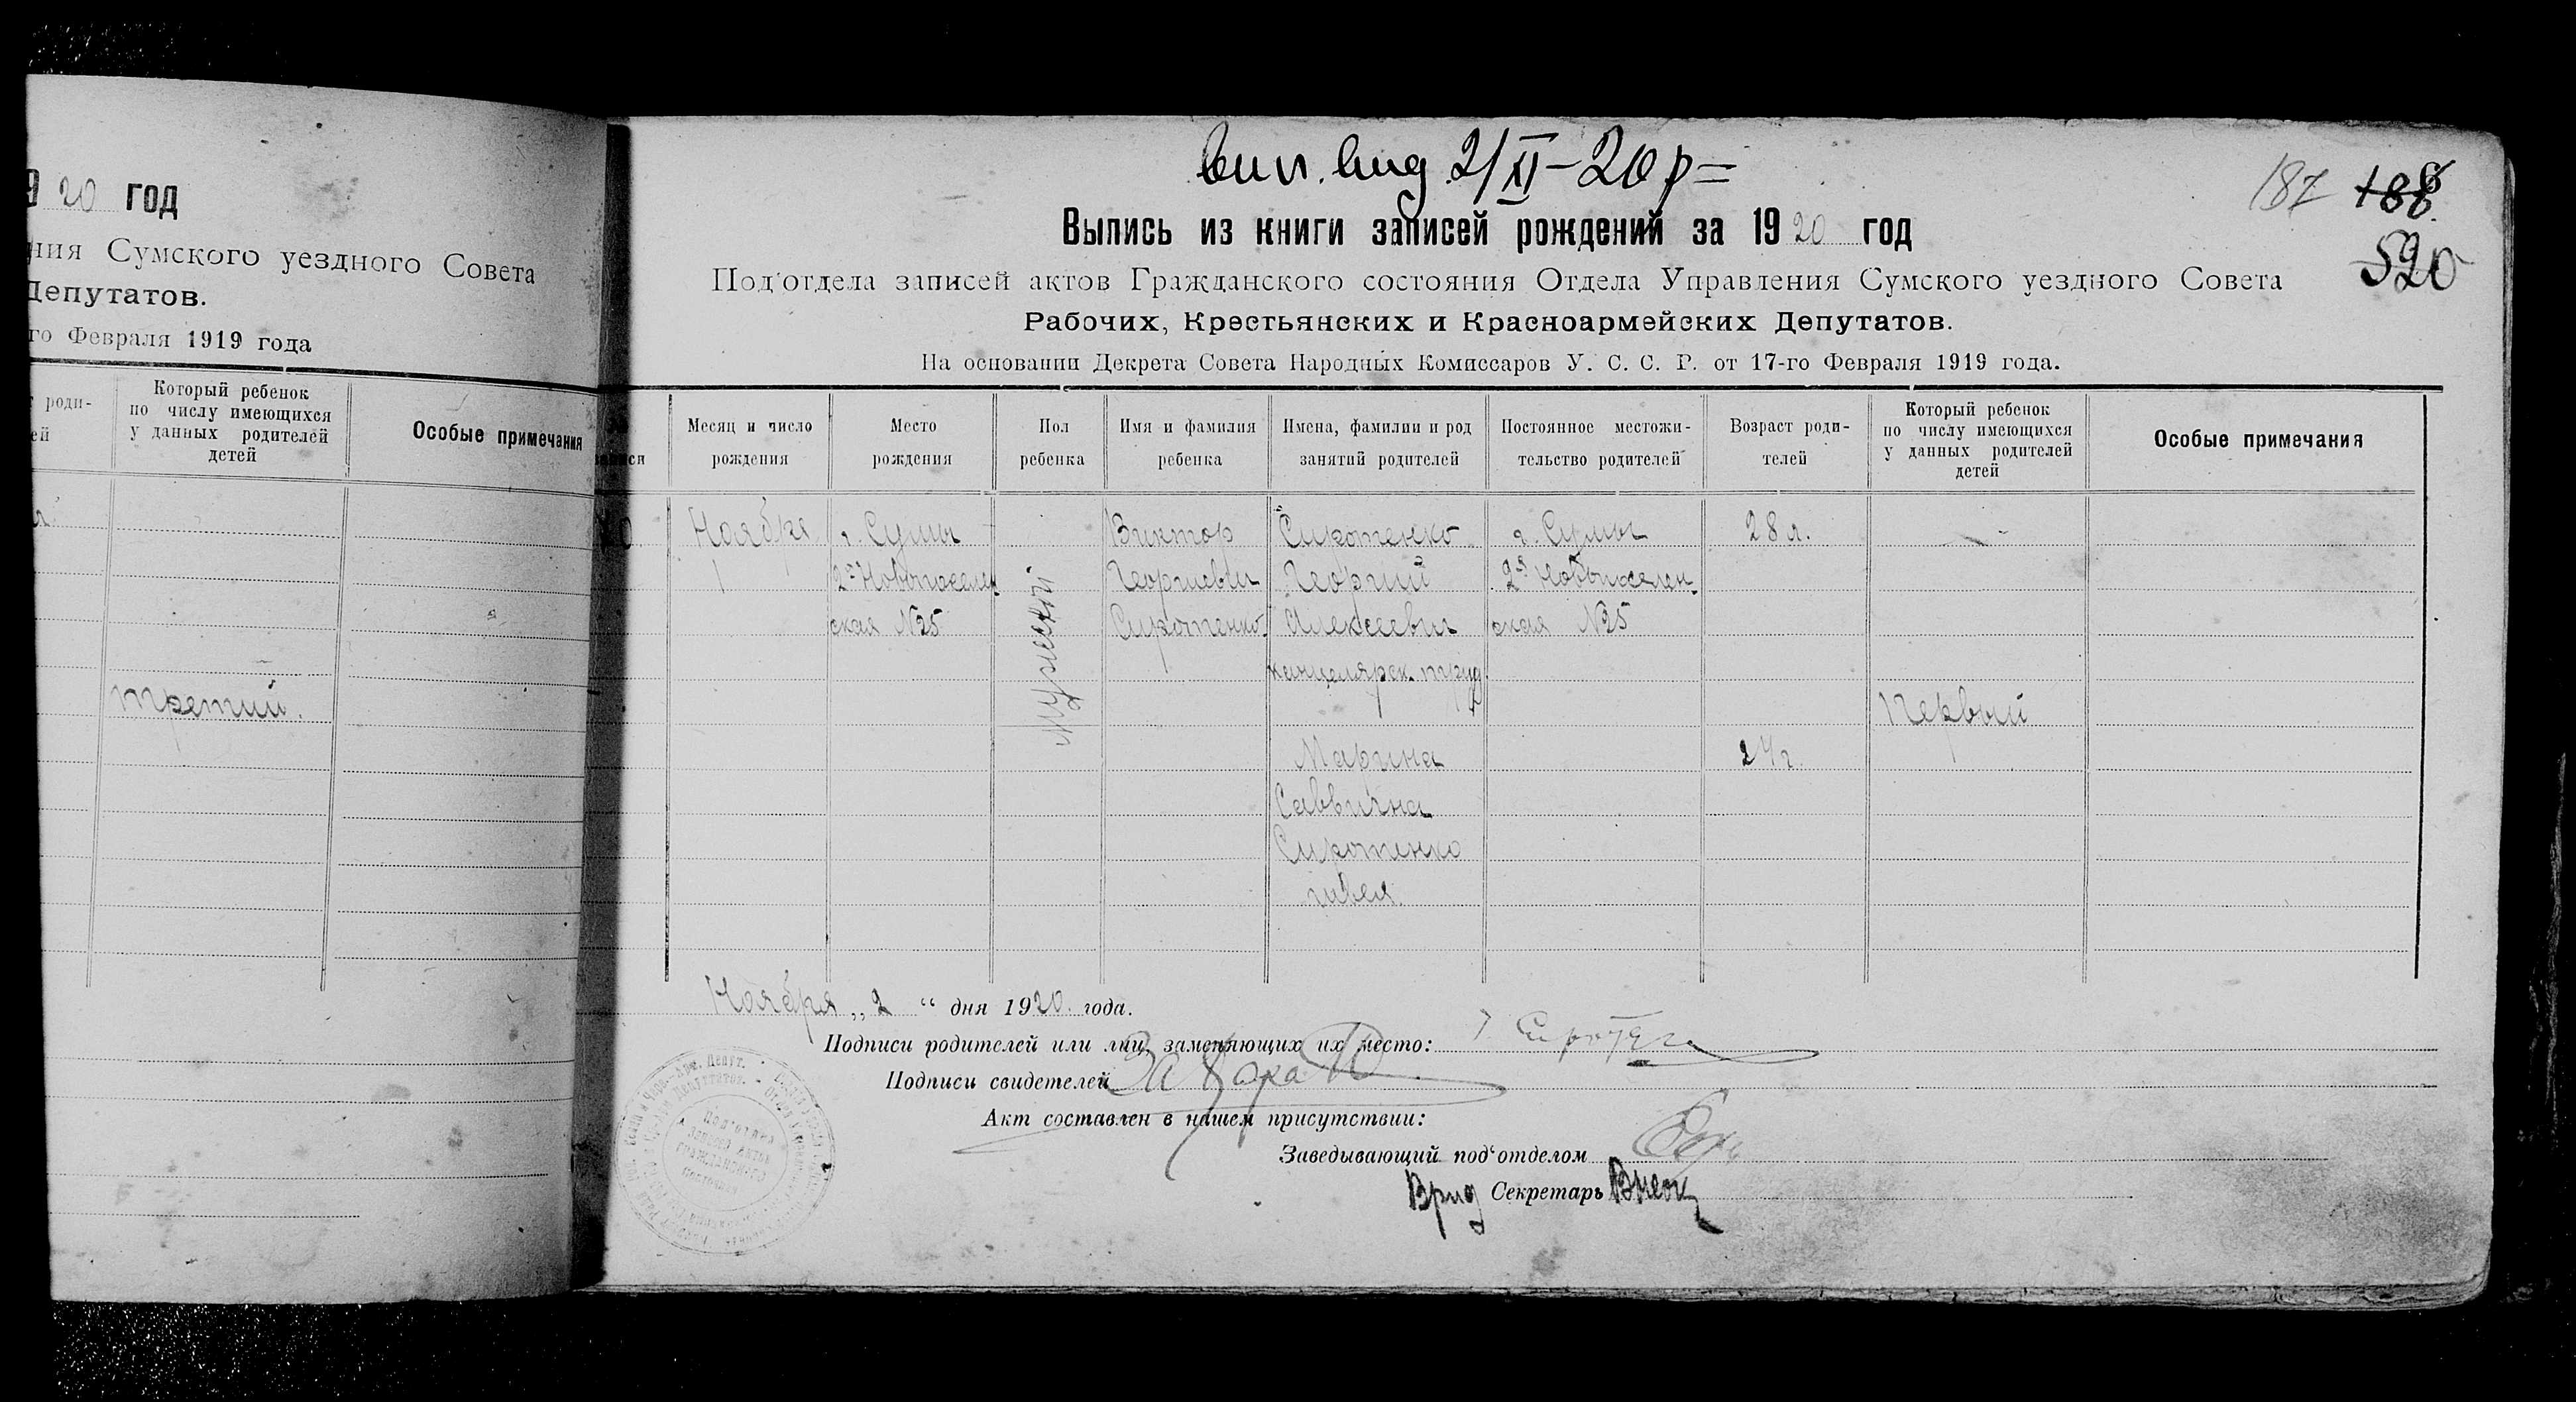 20 год
ния Сумского уездного Совета
Депутатов.
го Февраля 1919 года
роди-
ей
Который ребенок
по числу имеющихся
у данных родителей
детей
Особые примечания
третий.
вип. вид 2/XI-20 р=
187 188
520
Выпись из книги записей рождений за 1920 год
Под'отдела записей актов Гражданского состояния Отдела Управления Сумского уездного Совета
Рабочих, Крестьянских и Красноармейских Депутатов.
На основании Декрета Совета Народных Комиссаров У. С. С. Р. от 17-го Февраля 1919 года.
Месяц и число
рождения
Место
рождения
Пол
ребенка
Имя и фамилия
ребенка
Имена, фамилии и род
занятий родителей
Постоянное местожи-
тельство родителей
Возраст роди-
телей
Который ребенок
по числу имеющихся
у данных родителей
детей
Особые примечания
Ноября
1
г. Сумы
2я Новопоселен
ская №25
Мужеский
Виктор
Георгиевич
Сиротенко
Сиротенко
Георгий
Алексеевич
канцелярск. труд
Марина
Саввична
Сиротенко
швея.
г. Сумы
2я Новопоселен.
ская №25
28 л.
24 г.
Первый
Ноября „2“ дня 1920. года.
Подписи родителей или лиц, заменяющих их место:
Подписи свидетелей
Акт составлен в нашем присутствии:
Заведывающий под'отделом
Врид Секретарь